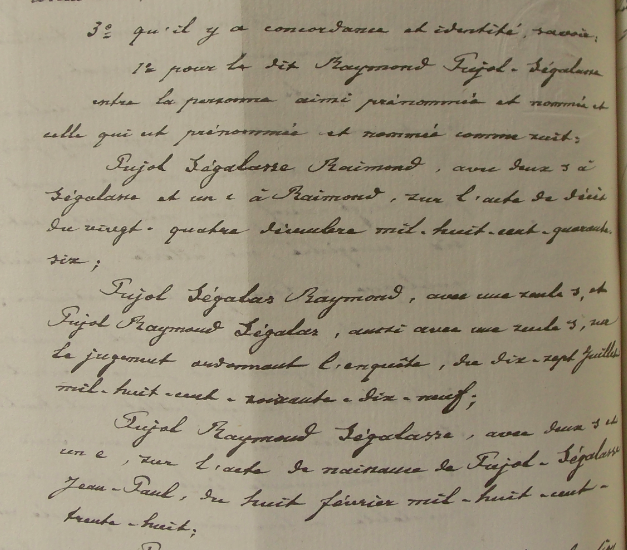 3º qu'il y a concordance et identité, savoir:
1º pour le dit Raymond Pujol-Ségalasse
entre la personne ainsi prénommée et nommée et
celle qui est prénommée et nommée comme suit:
Pujol Ségalasse Raimond, avec deux s à
Ségalasse et un i à Raimond, sur l'acte de décès
du vingt-quatre décembre mil-huit-cent-quarante-
six;
Pujol Ségalas Raymond, avec une seule s, et
Pujol Raymond Ségalas, aussi avec une seule s, sur
le jugement ordonnant l'enquête, du dix-sept Juillet
mil-huit-cent-soixante-dix-neuf;
Pujol Raymond Ségalasse, avec deux s et
un e, sur l'acte de naissance de Pujol-Ségalasse
Jean-Paul, du huit février mil-huit-cent-
trente-huit;